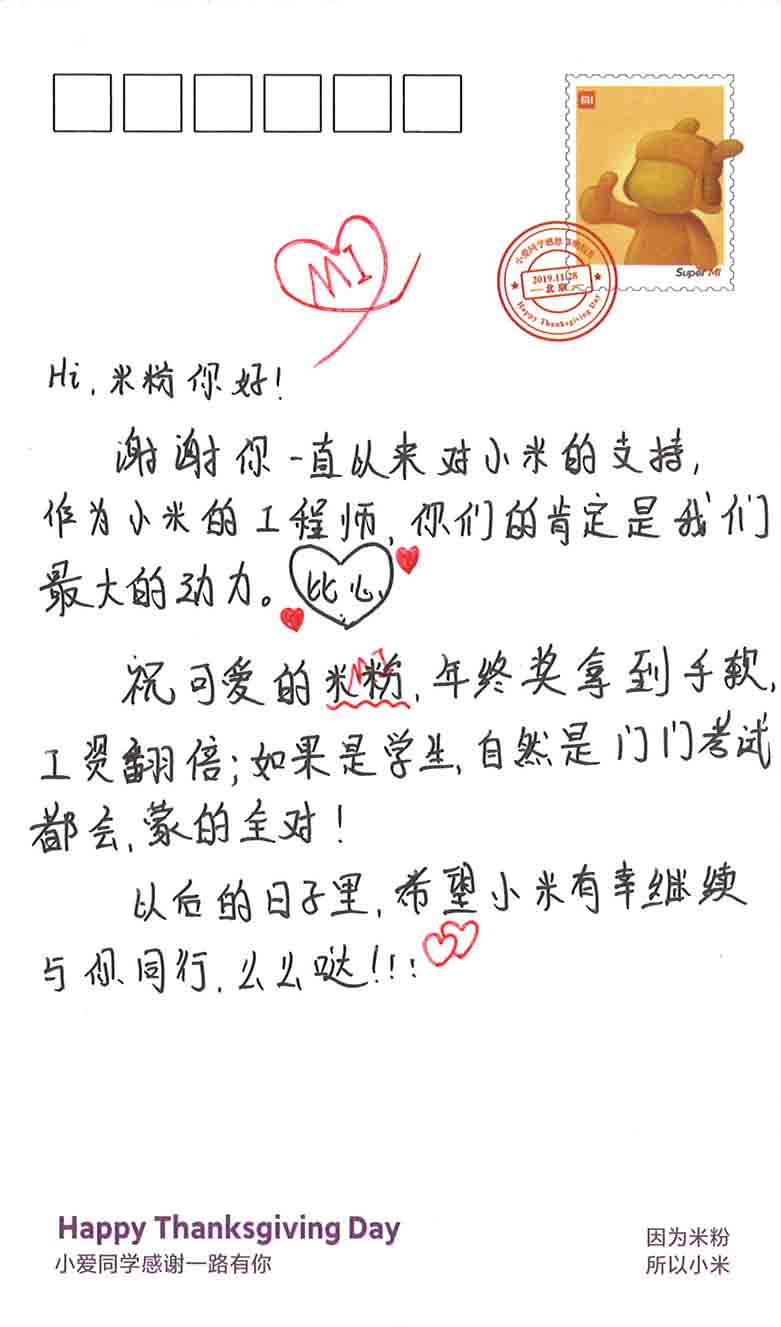 MI
Super MI
2019.11.28
北京
Happy Thanksgiving Day
MI
Hi,米粉你好!
谢谢你一直以来对小米的支持,
作为小米的工程师,你们的肯定是我们
最大的动力。比心
MI
祝可爱的米粉,年终奖拿到手软,
工资翻倍;如果是学生,自然是门门考试
都会,蒙的全对!
以后的日子里,希望小米有幸继续
与你同行,么么哒!!!
Happy Thanksgiving Day
小爱同学感谢一路有你
因为米粉
所以小米